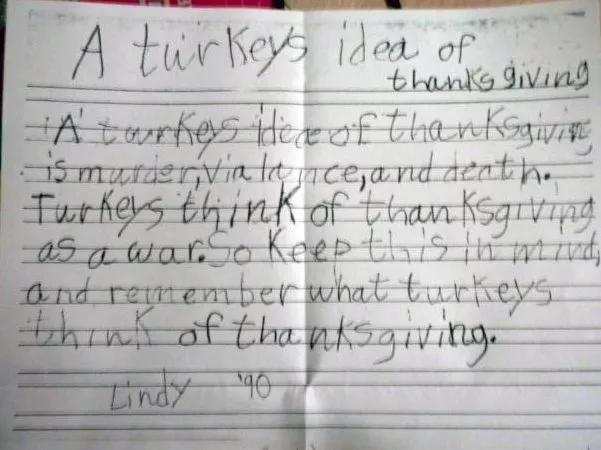 A turkeys idea of
thanksgiving
A turkeys idea of thanksgiving
is murder, vialence, and death.
Turkeys think of thanksgiving
as a war. So Keep this in mind,
and remember what turkeys
think of thanksgiving.
Lindy '90